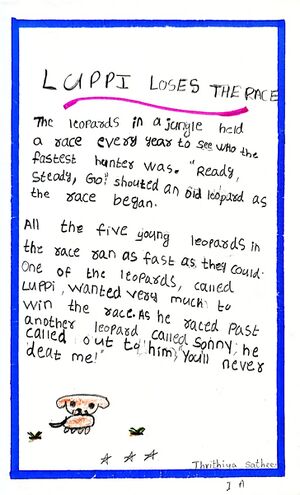 LUPPI LOSES THE RACE
The leopards in a jungle held
a race every year to see who the
fastest hunter was. "Ready,
Steady, Go!" shouted an old leopard as
the race began.
All the five young leopards in
the race ran as fast as they could.
One of the leopards, called
Luppi, wanted very much to
win the race. As he raced past
another leopard called Sonny, he
called out to him, "You'll never
deat me!"
Thrithiya Sathees
3 A